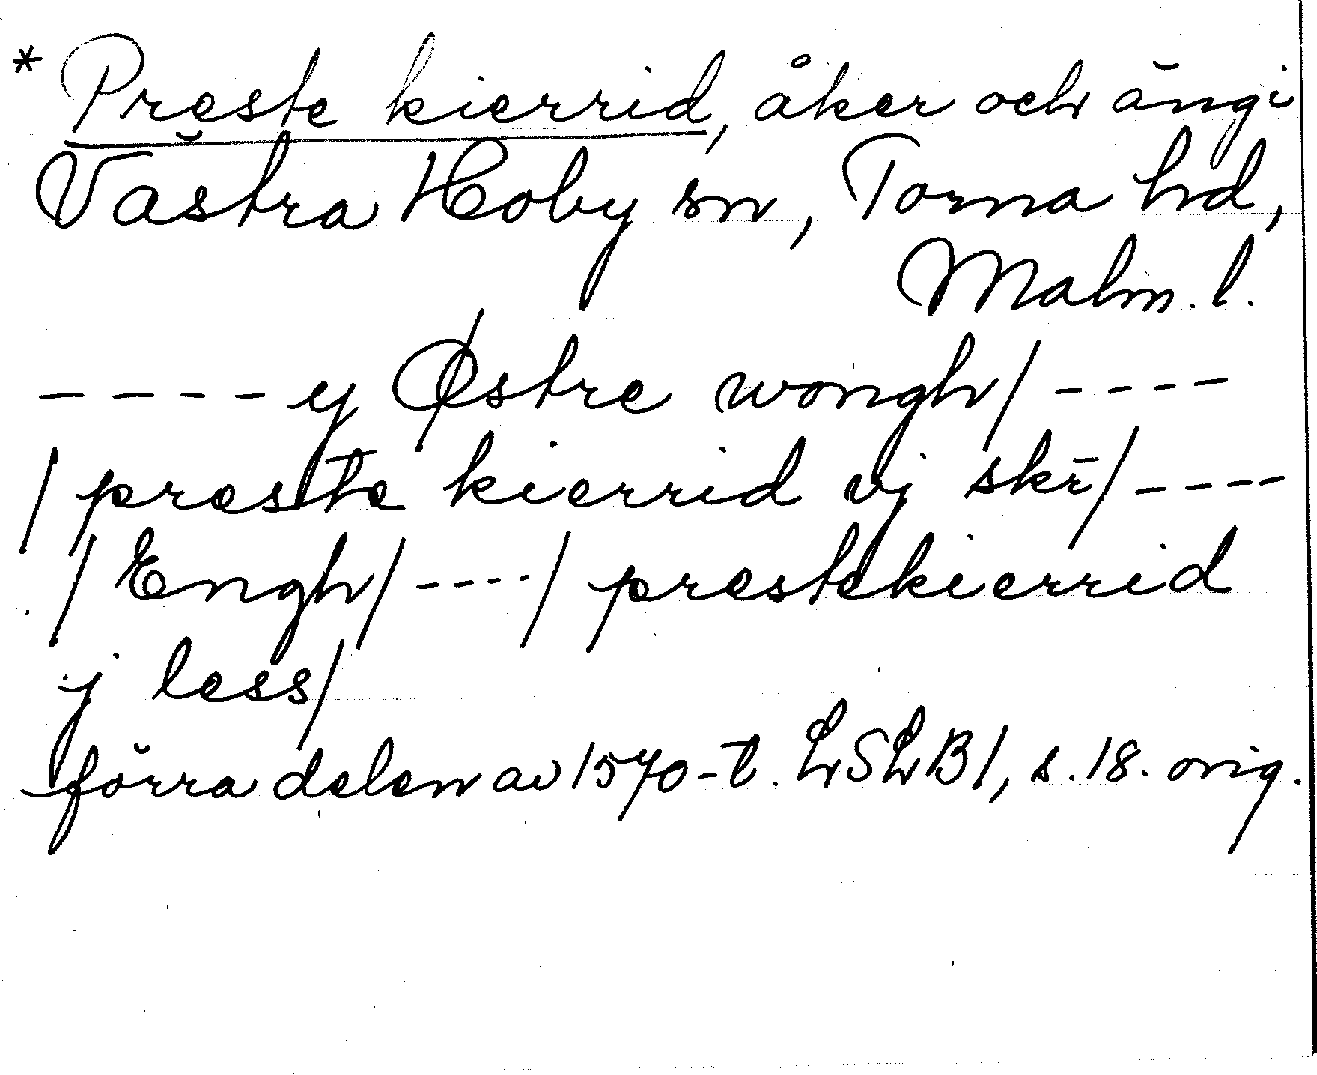 * Preste kierrid, åker och äng i
Västra Hoby sn, Torna hd,
Malm. l.
- - - - y Østre wongh/ - - - -
/ preste kierrid vj skr̄/ - - - -
/ Engh/ - - - - / prestekierrid
j less/
förra delen av 1570-t. LSLB 1, s. 18. orig.